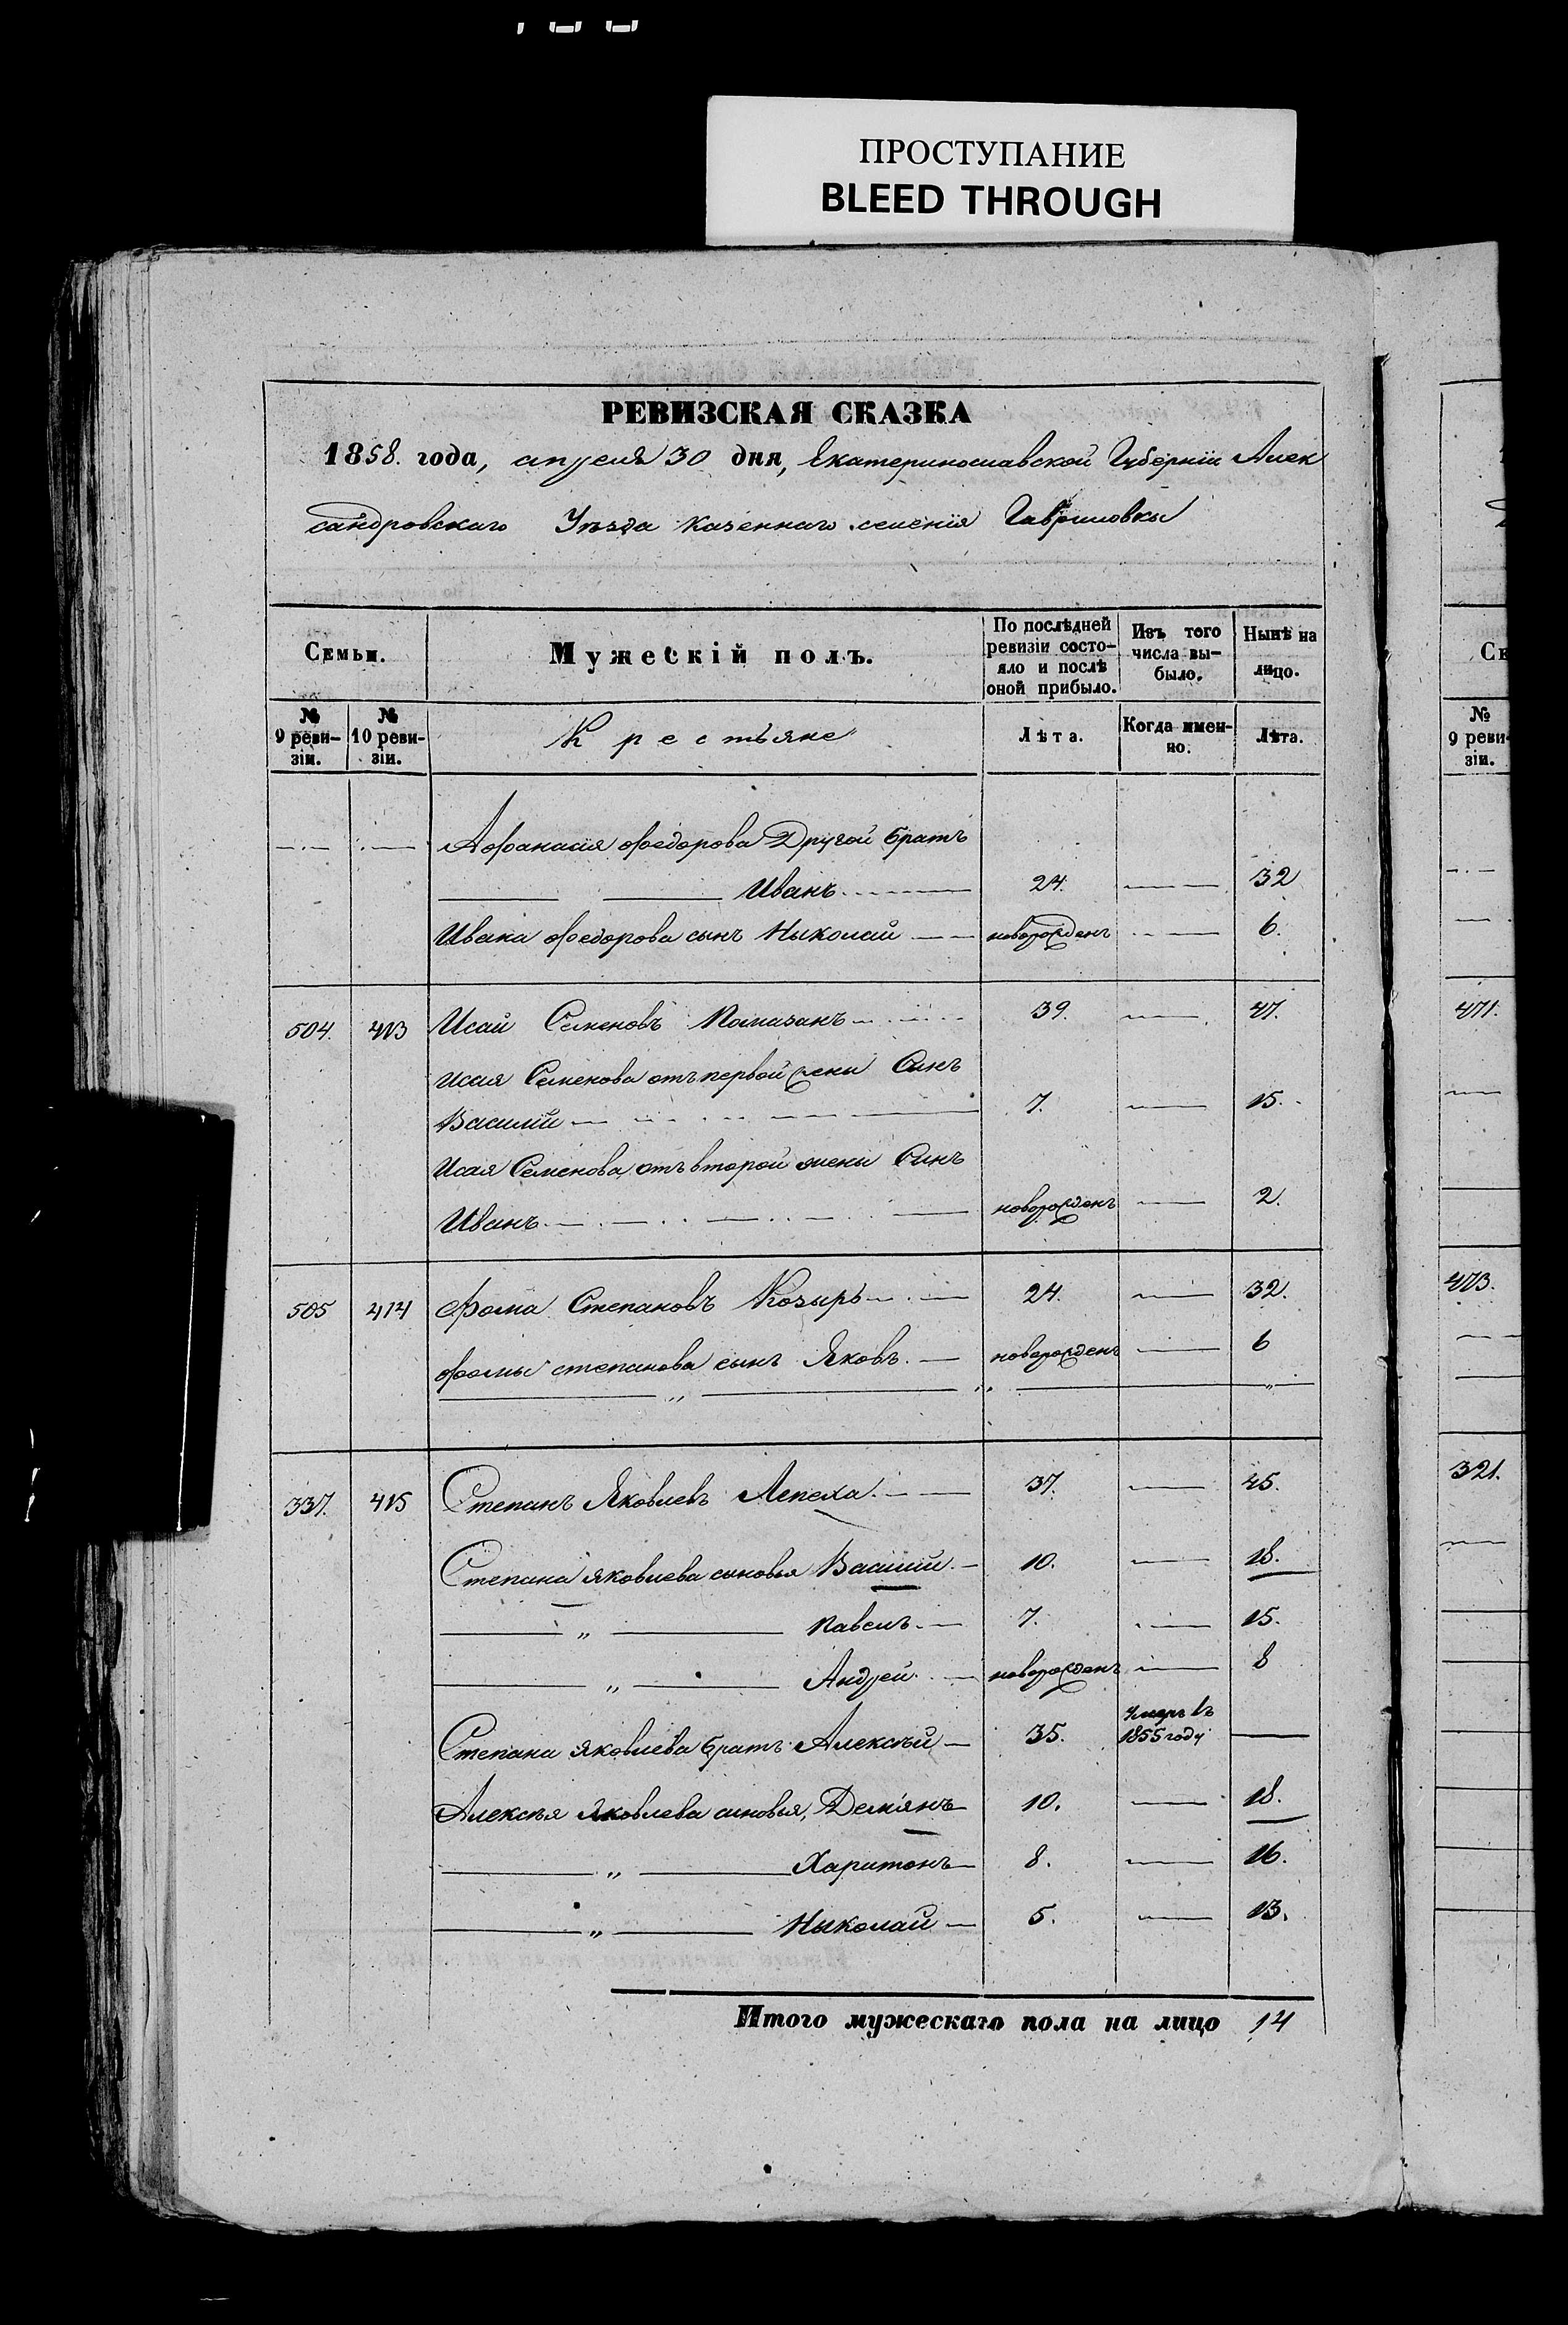 ПРОСТУПАНИЕ
BLEED THROUGH
РЕВИЗСКАЯ СКАЗКА
1858. года, апреля 30 дня, Екатеринославской Губерніи Алек
сандровскаго Уезда казеннаго селенія Гавриловки
Семьи. Мужескій полъ. По послѣдней ревизіи состо-яло и послѣ оной прибыло. Изъ того числа вы-было. Нынѣ на лицо.
№ 9 реви-зіи. № 10 реви-зіи. Крестьяне Лѣта. Когда имен-но. Лѣта.
Афанасія Федорова Другой братъ
Иванъ 24. 32
Ивана Федорова сынъ Николай новорожденъ 6.
504. 413 Исай Семеновъ Помазанъ 39. 47.
Исая Семенова отъ первой жены Сынъ
Василий 7. 15.
Исая Семенова отъ второй жены Сынъ
Иванъ новорожденъ 2.
505 414 Фома Степановъ Козырь 24. 32.
Фомы степанова сынъ Яковъ. новорожденъ 6
337. 415 Степанъ Яковлевъ Лепеха. 37. 45.
Степана яковлева сыновья Василий. 10. 18.
„ Павелъ. 7. 15.
„ Андрей. новорожденъ 8
Степана яковлева братъ Алексѣй 35. Умеръ въ 1855 году
Алексѣя Яковлева сыновья, Демянъ 10. 18.
„ Харитонъ 8. 16.
„ Николай 5. 13.
Итого мужескаго пола на лицо 14
Се
№
9 реви-
зіи.
471.
473.
321.